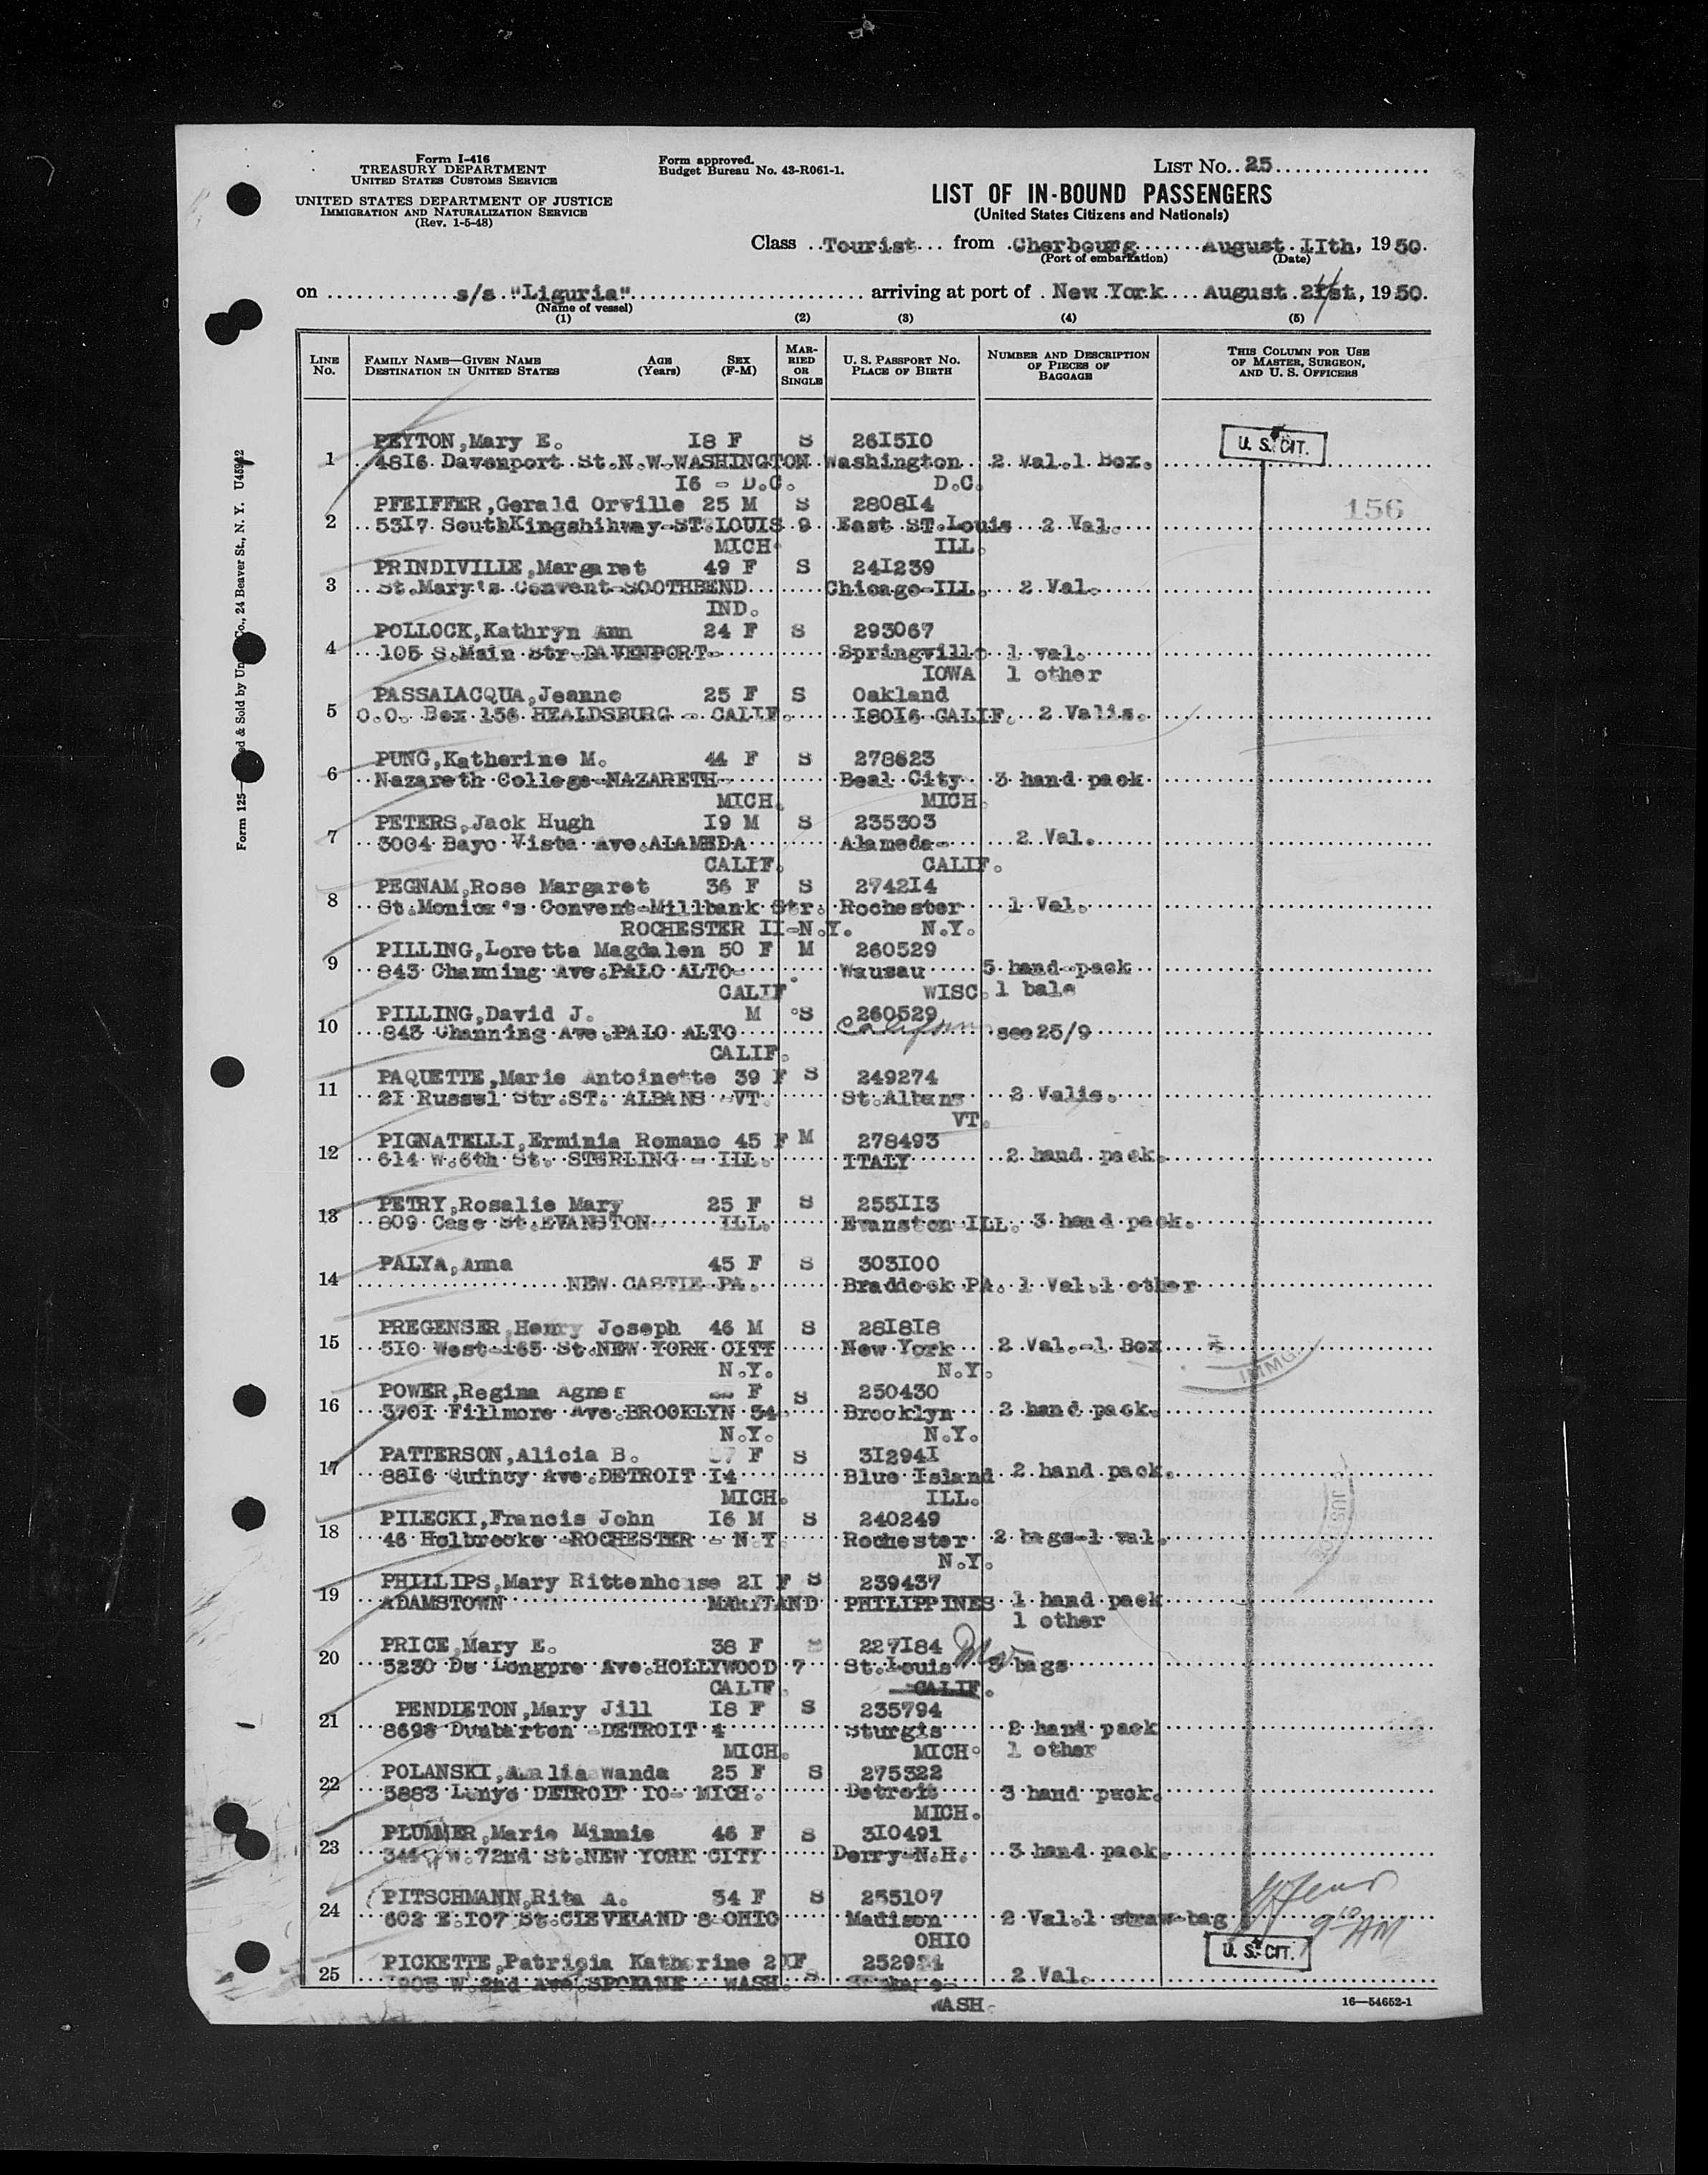 Form I-416
TREASURY DEPARTMENT
UNITED STATES CUSTOMS SERVICE
UNITED STATES DEPARTMENT OF JUSTICE
IMMIGRATION AND NATURALIZATION SERVICE
(Rev. 1-5-48)
Form approved.
Budget Bureau No. 43-R061-1.
LIST No. 25
LIST OF IN-BOUND PASSENGERS
(United States Citizens and Nationals)
Class Tourist from Cherbourg August IIth, 1950.
(Port of embarkation) (Date)
on s/s "Liguria" arriving at port of New York August st, 1950.
(Name of vessel)
(1) (2) (3) (4) (5)
LINE No. FAMILY NAME—GIVEN NAME DESTINATION IN UNITED STATES AGE (Years) SEX (F-M) MARRIED OR SINGLE U. S. PASSPORT NO. PLACE OF BIRTH NUMBER AND DESCRIPTION OF PIECES OF BAGGAGE THIS COLUMN FOR USE OF MASTER, SURGEON, AND U. S. OFFICERS
PEYTON,Mary E. I8 F S 26I5I0 U. S. CIT.
1 48I6 Davenport St.N.W.WASHINGTON Washington 2 Val.1 Box.
I6 - D.C. D.C.
PFEIFFER,Gerald Orville 25 M S 2808I4 156
2 53I7 SouthKingshihway-ST.LOUIS 9 East ST.Louis 2 Val.
MICH. ILL.
PRINDIVILLE,Margaret 49 F S 24I239
3 St.Mary's Convent-SOOTHBEND Chicago-ILL. 2 Val.
IND.
POLLOCK,Kathryn Ann 24 F S 293067
4 105 S.Main Str.DAVENPORT- Springville 1 val.
IOWA 1 other
PASSALACQUA,Jeanne 25 F S Oakland
5 O.O. Box 156 HEALDSBURG - CALIF. I80I6 CALIF. 2 Valis.
PUNG,Katherine M. 44 F S 278623
6 Nazareth College-NAZARETH Beal City 3 hand pack
MICH. MICH.
PETERS,Jack Hugh I9 M S 235303
7 3004 Bayo Vista Ave.ALAMEDA Alameda- 2 Val.
CALIF. CALIF.
PEGNAM,Rose Margaret 36 F S 2742I4
8 St.Monica's Convent-Millbank Str. Rochester 1 Val.
ROCHESTER II-N.Y. N.Y.
PILLING,Loretta Magdalen 50 F M 260529
9 843 Channing Ave.PALO ALTO- Wausau 5 hand-pack
CALIF. WISC. 1 bale
PILLING,David J. M S 260529
10 843 Channing Ave.PALO ALTO see 25/9
CALIF.
PAQUETTE,Marie Antoinette 39 F S 249274
11 2I Russel Str.ST. ALBANS -VT. St.Albans 2 Valis.
VT.
PIGNATELLI,Erminia Romano 45 F M 278493
12 614 W.6th St. STERLING - ILL. ITALY 2 hand pack.
PETRY,Rosalie Mary 25 F S 255II3
13 809 Case St.EVANSTON ILL. Evanston ILL. 3 hand pack.
PALYA,Anna 45 F S 303I00
14 NEW CASTLE PA. Braddock PA. 1 Val.1 other
PREGENSER,Henry Joseph 46 M S 28I8I8
15 5I0 West 165 St.NEW YORK CITY New York 2 Val.-1 Box
N.Y. N.Y. IMMG.
POWER,Regina Agnes F S 250430
16 370I Fillmore Ave.BROOKLYN 34 Brooklyn 2 hand pack.
N.Y. N.Y.
PATTERSON,Alicia B. 7 F S 3I294I
17 88I6 Quincy Ave.DETROIT I4 Blue Island 2 hand pack.
MICH. ILL.
PILECKI,Francis John I6 M S 240249
18 46 Holbrooke -ROCHESTER - N.Y. Rochester 2 bags-1 val.
N.Y.
PHILLIPS,Mary Rittenhouse 2I F S 239437
19 ADAMSTOWN MARYLAND PHILIPPINES 1 hand pack
1 other
PRICE,Mary E. 38 F S 227I84
20 5230 De Longpre Ave.HOLLYWOOD 7 St.Louis Mo 3 bags
CALIF. CALIF.
PENDLETON,Mary Jill I8 F S 235794
21 8698 Dunbarton -DETROIT 4 Sturgis 2 hand pack
MICH. MICH. 1 other
POLANSKI,Amalia Wanda 25 F S 275322
22 Lenyo DETROIT IO- MICH. Detroit 3 hand pack.
MICH.
PLUMMER,Marie Minnie 46 F S 3I0491
23 W.72nd St.NEW YORK CITY Derry-N.H. 3 hand pack.
PITSCHMANN,Rita A. 34 F S 255107
24 602 E.I07 St.CLEVELAND 8-OHIO Madison 2 Val.1 straw-bag
OHIO AM
U. S. CIT.
PICKETTE,Patricia Katherine F
25 W.2nd Ave.SPOKANE WASH. S 2 Val.
WASH.
16—54652-1